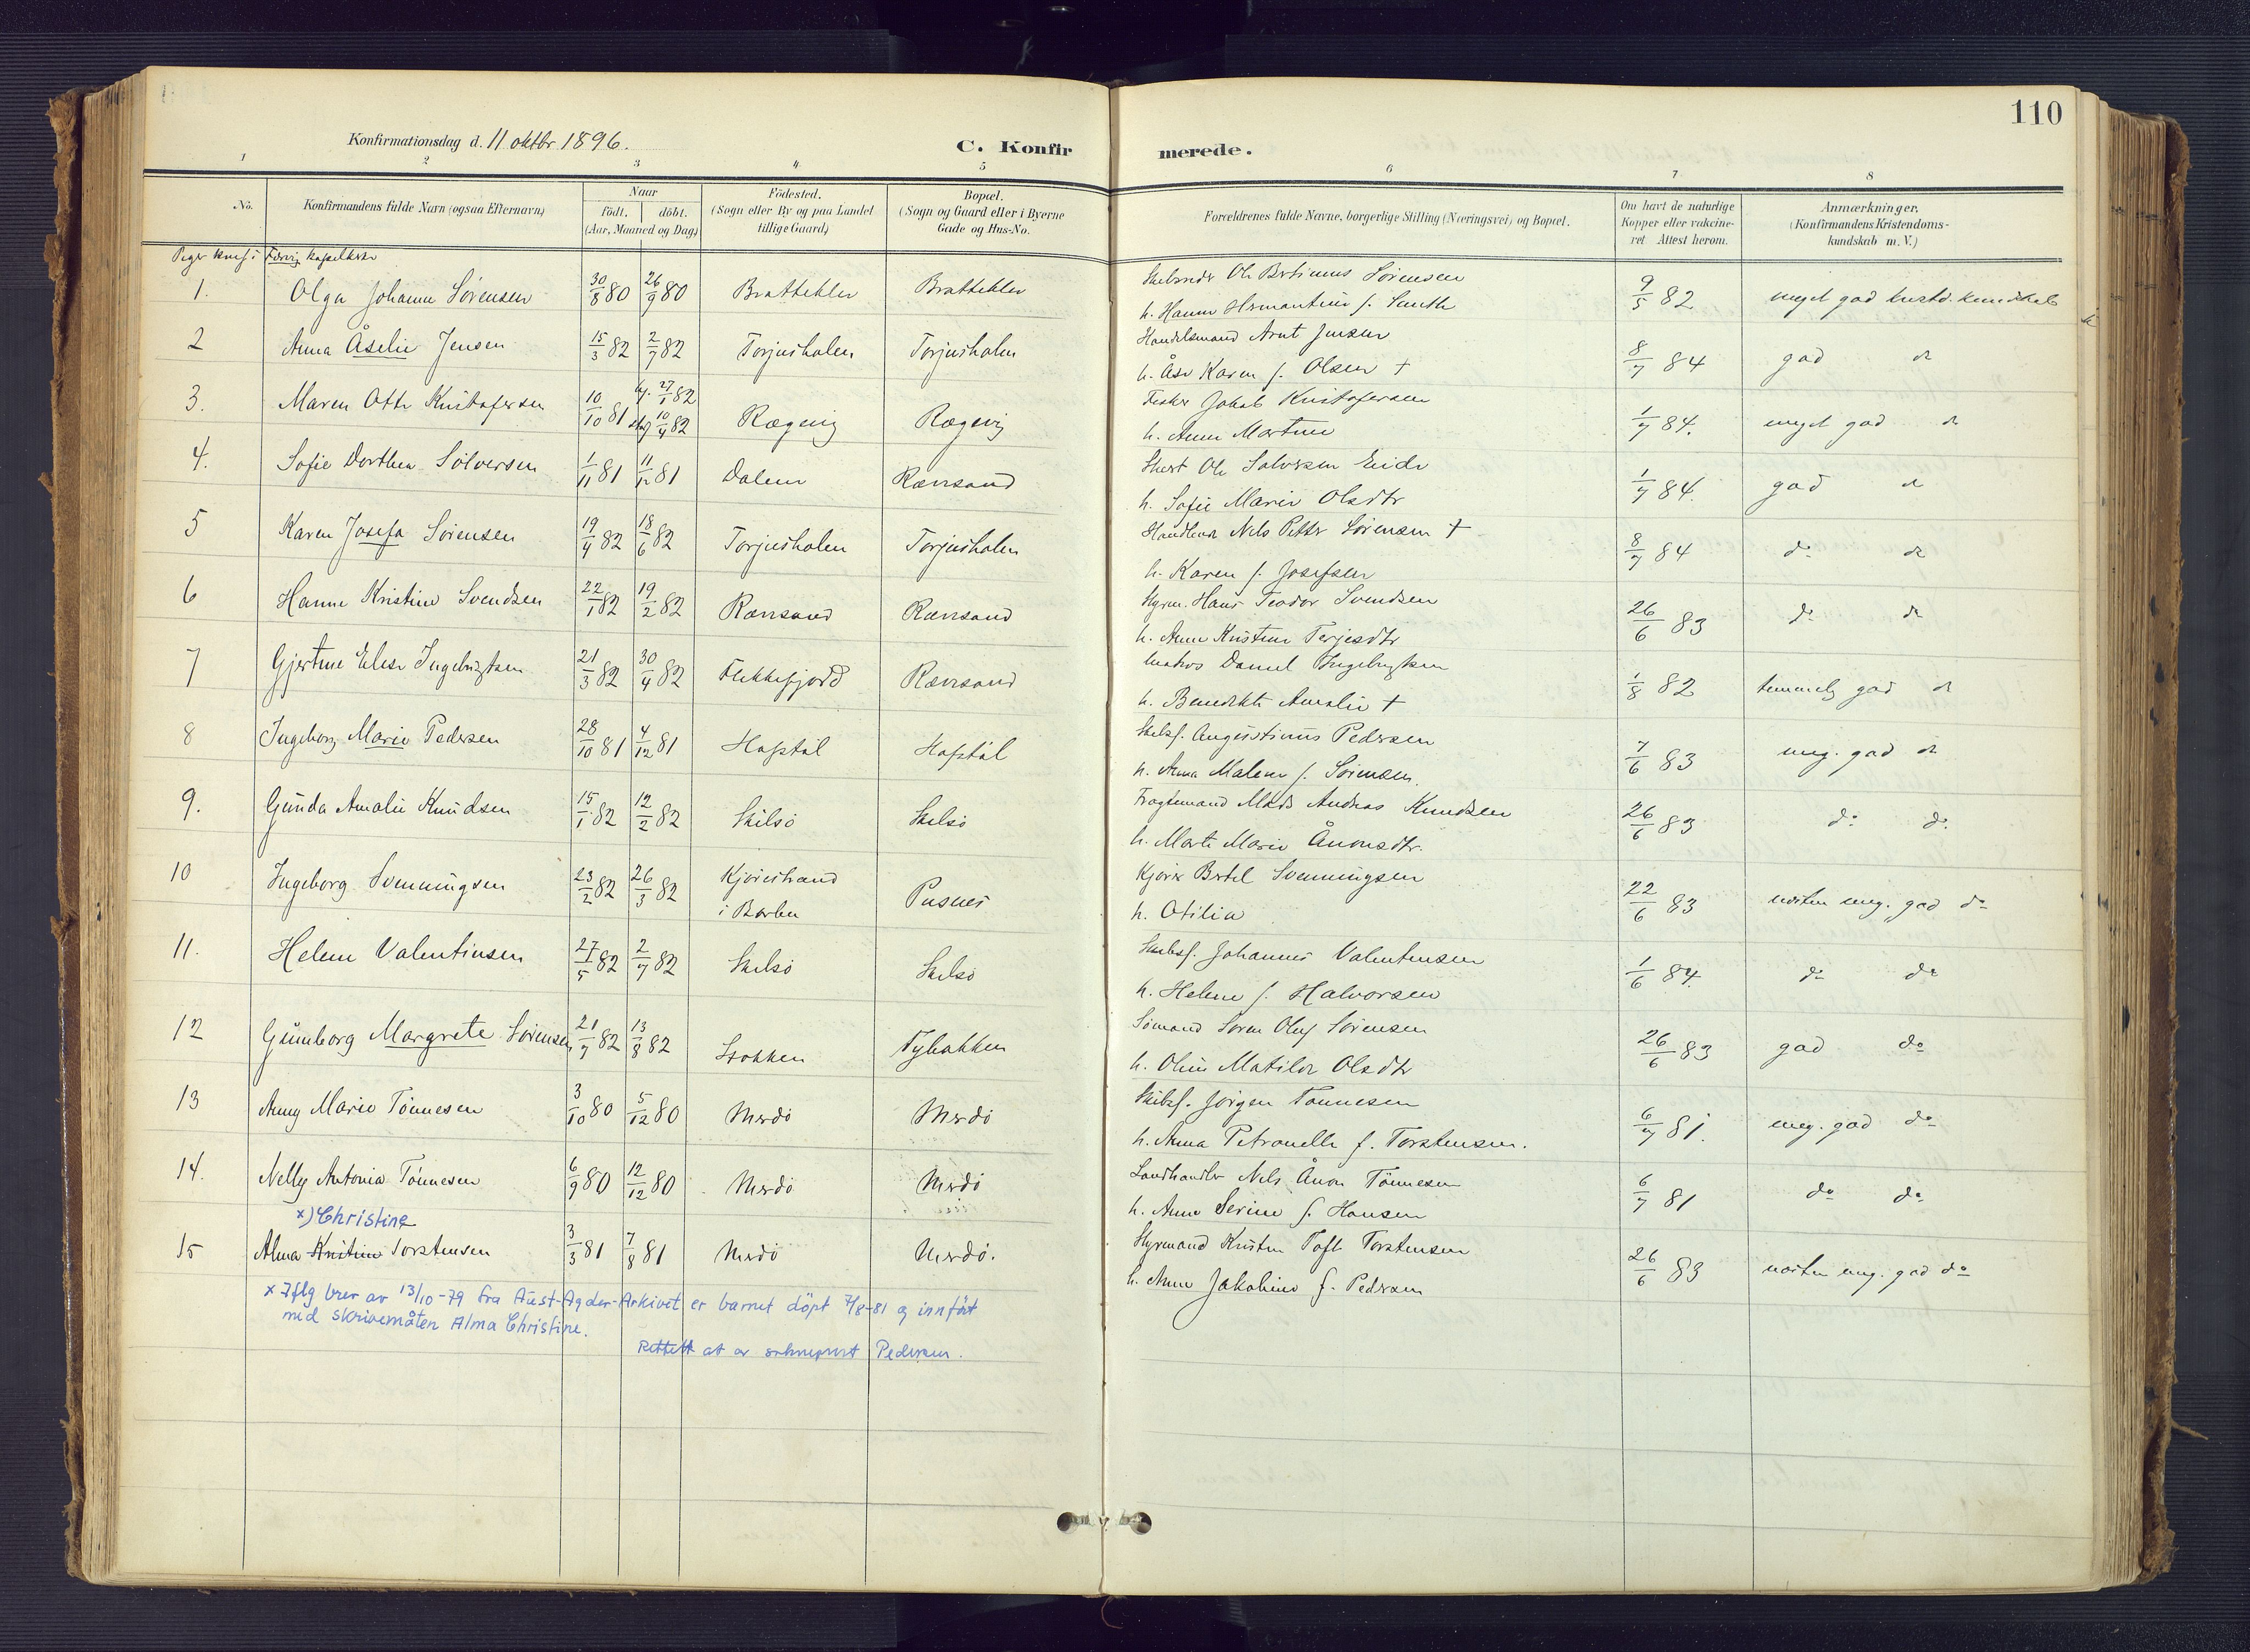 110
Konfirmationsdag d. 11 oktbr. 1896.
C. Konfirmerede.
1 2 3 4 5 6 7 8
No.
Konfirmandens fulde Navn (ogsaa Efternavn)
Naar
födt. döbt.
(Aar, Maaned og Dag)
Födested.
(Sogn eller By og paa Landet
tillige Gaard)
Bopæl.
(Sogn og Gaard eller i Byerne
Gade og Hus-No.
Forældrenes fulde Navne, borgerlige Stilling (Næringsvei) og Bopæl.
Om havt de naturlige
Kopper eller vakcine-
ret Attest herom.
Anmærkninger.
(Konfirmandens Kristendoms-
kundskab m. V.)
Piger konf i Færvig kapelkirke
1. Olga Johanne Sörensen 30/8 80 26/9 80 Brattekler Brattekler
Skibsreder Ole Bertinius Sörensen
h. Hanne Hermantine f. Smith 9/5 82 meget god kristd. kundskab
2 Anna Åselie Jensen 15/3 82 2/7 82 Torjusholen Torjusholen
Handelsmand Arnt Jensen
h. Åse Karen f. Olsen † 8/7 84 god do
3. Maren Otte Kristofersen 10/10 81 hj. 27/1 82 stg 10/4 82 Rægevig Rægevig
Fisker Jakob Kristofersen
h. Anne Martine 1/7 84. meget god do
4. Sofie Dorthea Sölversen 1/11 81 11/12 81 Dalene Rævesand
Skert Ole Salvesen Eide
h. Sofie Marie Olsdtr 1/7 84. god do
5 Karen Josefa Sörensen 19/4 82 18/6 82 Torjusholen Torjusholen
Handlende Nils Petter Sörensen †
h. Karen f. Josefsen 8/7 84 do do
6 Hanne Kristine Svendsen 22/1 82 19/2 82 Rævesand Rævesand
Styrm. Hans Teodor Svendsen
h. Anne Kristine Terjesdtr 26/6 83 do do
7 Gjertine Elise Ingebrigtsen 21/3 82 30/4 82 Flekkefjord Rævesand
Matros Daniel Ingebrigtsen
h. Benedikte Amalie † 1/8 82 temmelig god do
8 Ingeborg Marie Pedersen 28/10 81 4/12 81 Hofstöl Hofstöl
Skibsf. Augustinus Pedersen
h. Anna Malene f. Sörensen. 7/6 83 meg. god do
9. Gunda Amalie Knudsen 15/1 82 12/2 82 Skilsö Skilsö
Fragtemand Mads Andreas Knudsen
h. Marte Marie Ånonsdtr. 26/6 83 do do
10 Ingeborg Svenningsen 23/2 82 26/3 82 Kjöristrand i Barbu Pusnes
Kjörer Bertel Svenningsen
h. Otilia 22/6 83 næsten meg. god do
11. Helene Valentinsen 27/5 82 2/7 82 Skilsö Skilsö
Skibsf. Johannes Valentinsen
h. Helene f. Halvorsen 1/6 84. do do
12 Gunnborg Margrete Sörensen 21/7 82 13/8 82 Stokken Tybakken
Sömand Sören Oluf Sörensen
h. Oline Matilde Olsdtr 26/6 83 god do
13 Anny Marie Tönnesen 3/10 80 5/12 80 Merdö Merdö
Skibsf. Jörgen Tönnesen
h. Anna Petronelle f. Torstensen. 6/7 81. meg. god do
14. Nelly Antonia Tönnesen 6/9 80 12/12 80 Merdö Merdö
Landhandler Nils Ånon Tönnesen
h. Anne Serine f. Hansen 6/7 81 do do
x) Christine
15 Alma Kristine Torstensen 3/3 81 7/8 81 Merdö Merdö.
Styrmand Kristen Toft Torstensen
h. Anne Jakobine f. Pedersen 26/6 83 næsten meg. god do
x Iflg brev av 13/10-79 fra Aust-Agder-Arkivet er barnet döpt 7/8-81 og innfört
med skrivemåten Alma Christine.
Rettet at av sokneprest Pedersen.